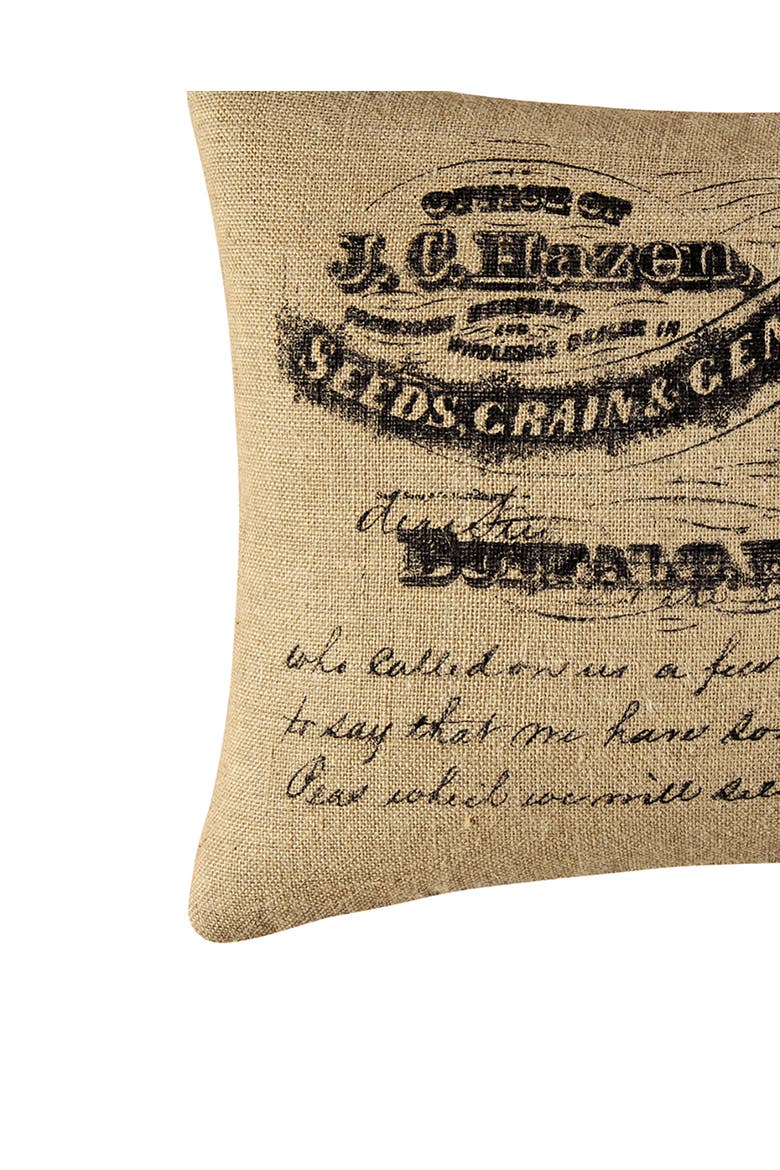 OFFICE OF
J. C. Hazen,
COMMISSION MERCHANT
AND
WHOLESALE DEALER IN
SEEDS, GRAIN & GEN
who called on us a few
to say that we have so
Peas which we will sell